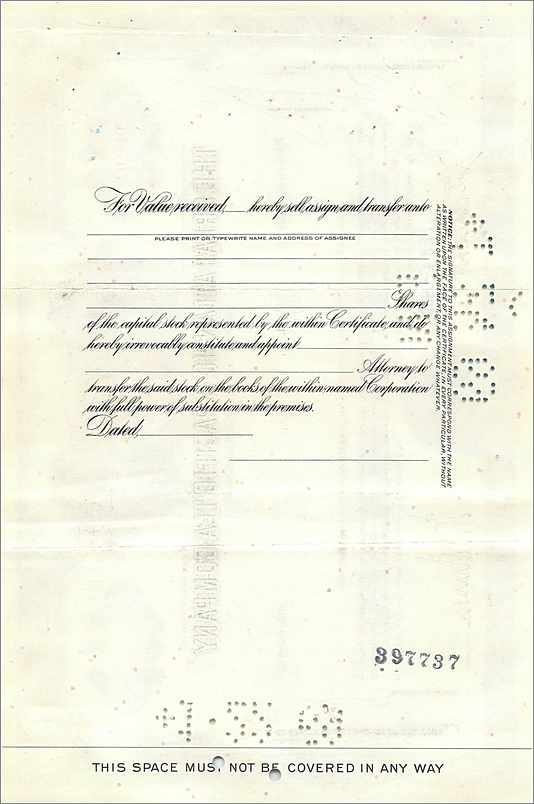 For Value received, hereby sell, assign, and transfer unto
PLEASE PRINT OR TYPEWRITE NAME AND ADDRESS OF ASSIGNEE
Shares
of the capital stock represented by the within Certificate, and do
hereby irrevocably constitute and appoint
Attorney to
transfer the said stock on the books of the within-named Corporation
with full power of substitution in the premises.
Dated,
NOTICE: THE SIGNATURE TO THIS ASSIGNMENT MUST CORRESPOND WITH THE NAME
AS WRITTEN UPON THE FACE OF THE CERTIFICATE, IN EVERY PARTICULAR, WITHOUT
ALTERATION OR ENLARGEMENT, OR ANY CHANGE WHATEVER.
397737
THIS SPACE MUST NOT BE COVERED IN ANY WAY